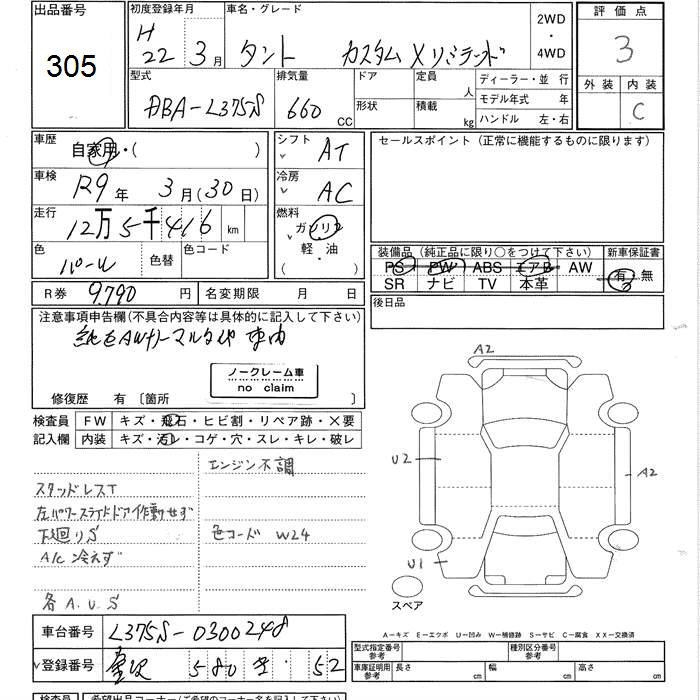 出品番号
305
初度登録年月
H 22 3月
車名・グレード
タント カスタムXリミテッド
2WD
・
4WD
評価点
3
外装 内装
C
型式
DBA-L375S
排気量
660 CC
ドア
形状
定員 人
積載 kg
ディーラー・並行
モデル年式 年
ハンドル 左・右
車歴
自家用・( )
シフト
AT
セールスポイント(正常に機能するものに限ります)
車検
R9年 3月(30日)
冷房
AC
走行
12万5千416 km
燃料
ガソリン
軽・油
( )
色
パール
色替
色コード
装備品(純正品に限り○をつけて下さい)
PS PW ABS エアB AW
SR ナビ TV 本革
新車保証書
有・無
R券 9,790 円
名変期限 月 日
後日品
注意事項申告欄(不具合内容等は具体的に記入して下さい)
ノークレーム車
no claim
修復歴 有〔箇所 〕
検査員 FW キズ・飛石・ヒビ割・リペア跡・X要
記入欄 内装 キズ・汚レ・コゲ・穴・スレ・キレ・破レ
エンジン不調
スタッドレスT
左パワースライドドア作動せず
下廻りS
色コード W24
A/C 冷えず
各A.U.S
A2
U2
A2
U1
スペア
A－キズ E－エクボ U－凹み W－補修跡 S－サビ C－腐食 XX－交換済
車台番号 L375S-0300248
登録番号 580 52
型式指定番号
参考
種別区分番号
参考
車庫証明用
参考
長さ 幅 高さ
cm cm cm
検査員 希望出品コーナー(ご希望のコーナー名を記入して下さい)